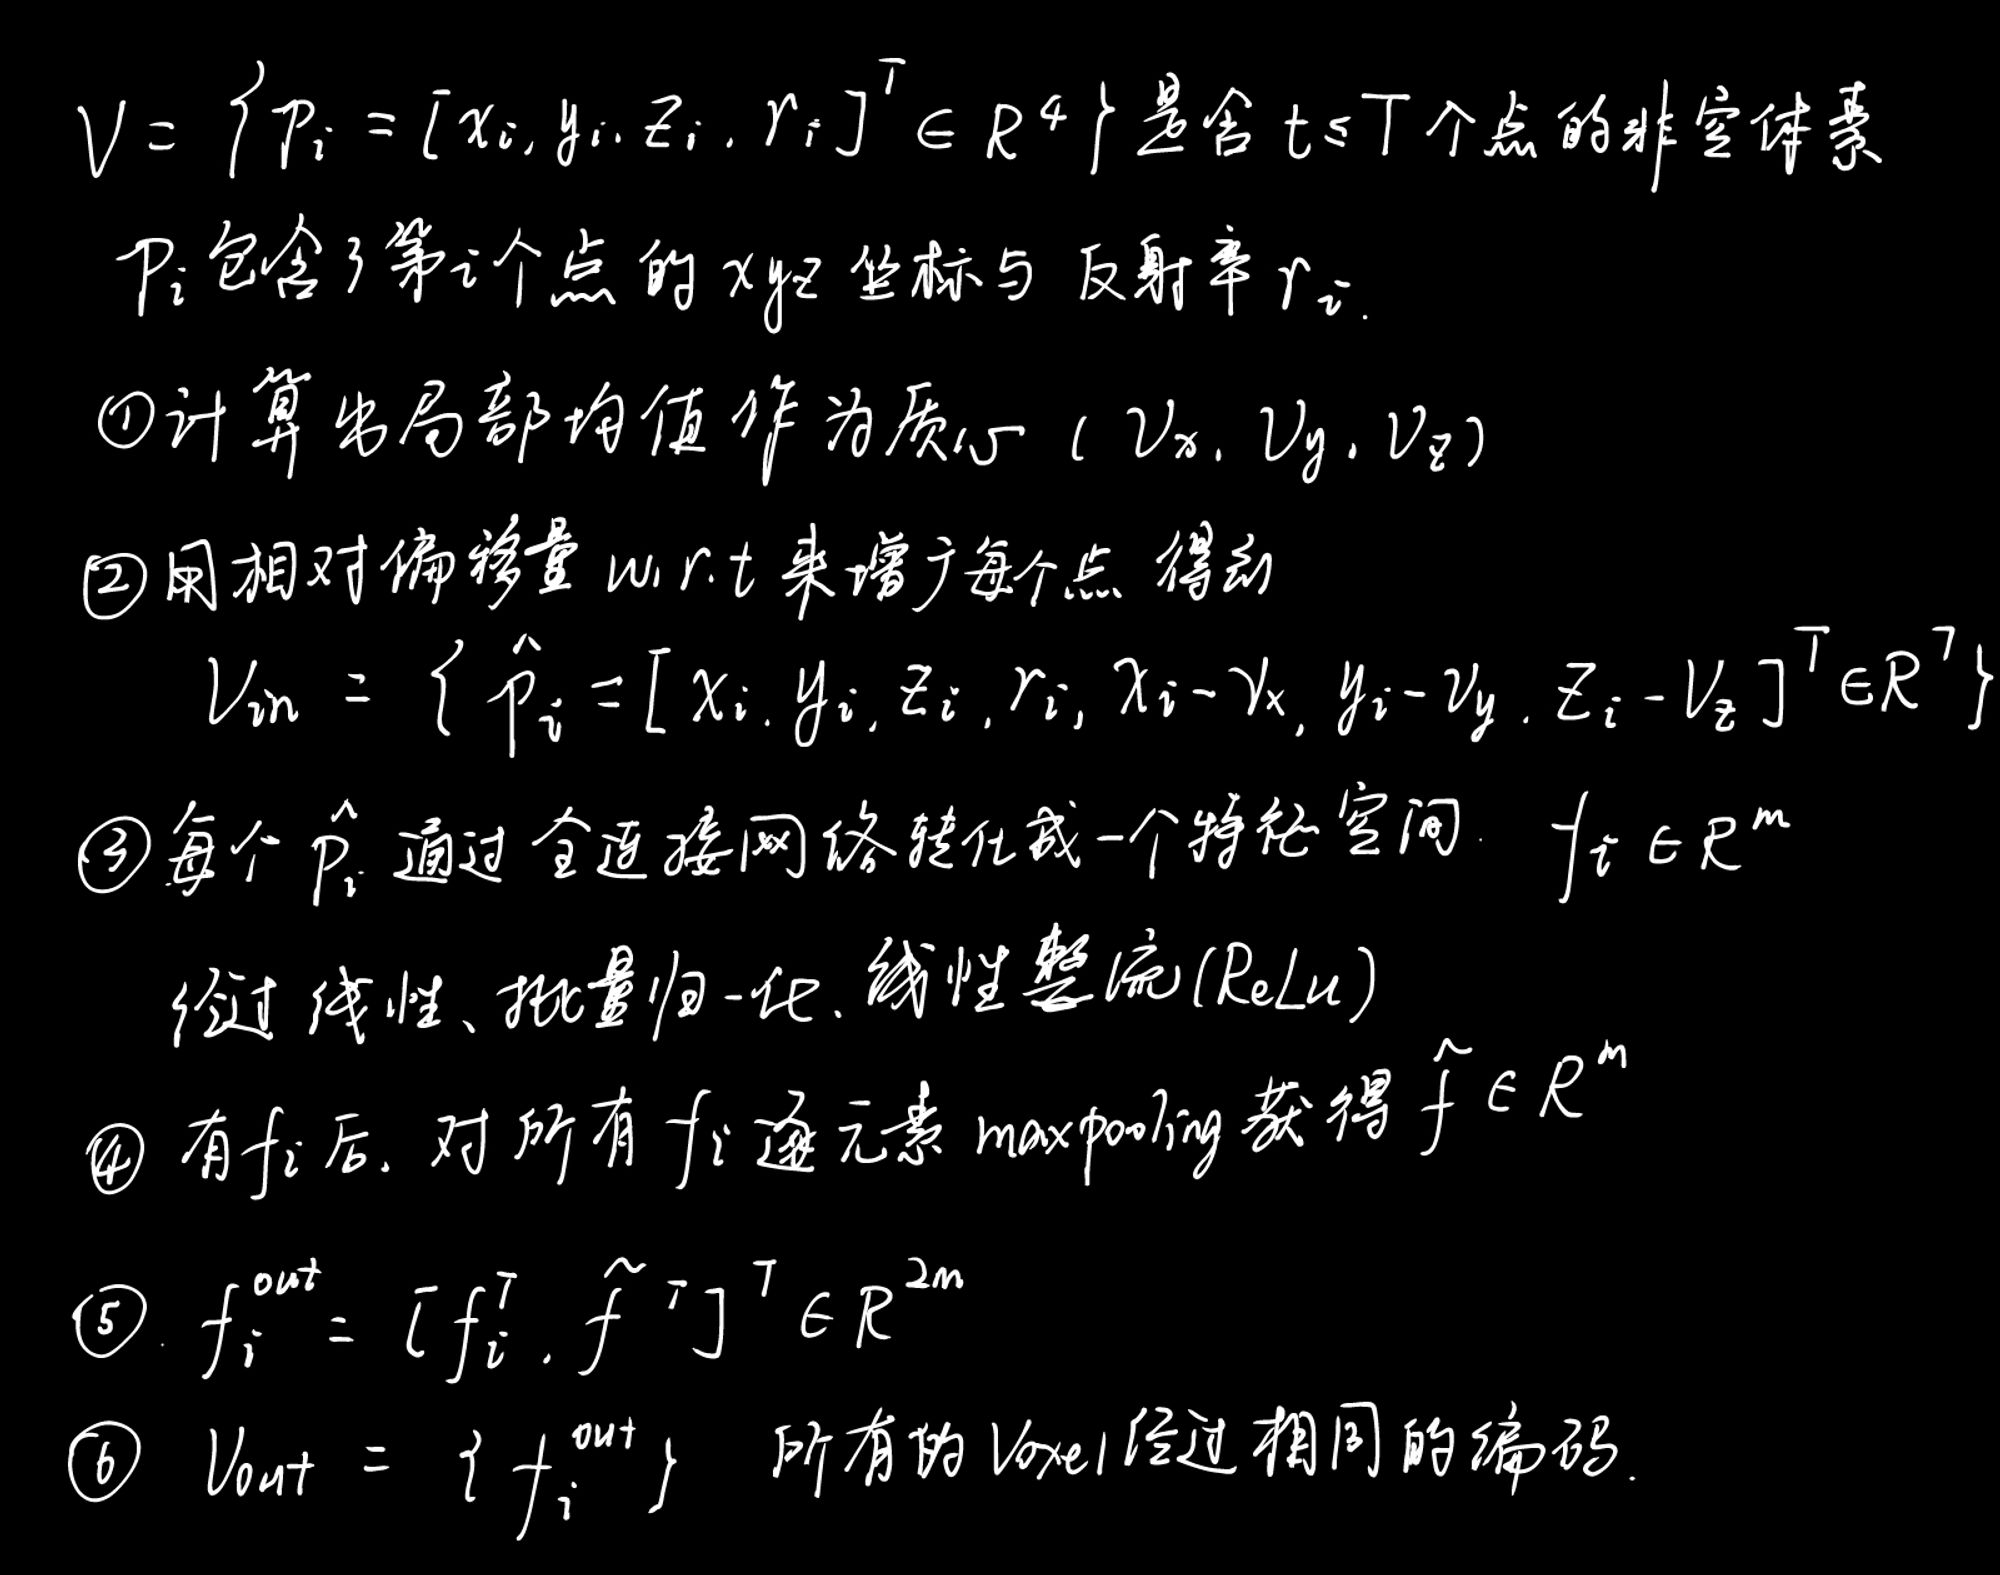 V = { Pi = [xi, yi, zi, ri]^T ∈ R^4 } 是含 t ≤ T 个点的非空体素
Pi 包含了第i个点的 xyz 坐标与 反射率 ri.
① 计算出局部均值作为质心 (Vx, Vy, Vz)
② 用相对偏移量 w.r.t 来增广每个点 得到
Vin = { p̂i = [xi, yi, zi, ri, xi-Vx, yi-Vy, zi-Vz]^T ∈ R^7 }
③ 每个 p̂i 通过全连接网络转化成一个特征空间. fi ∈ R^m
经过 线性、批量归一化、线性整流(ReLu)
④ 有fi后, 对所有 fi 逐元素 maxpooling 获得 f̃ ∈ R^m
⑤. fi^out = [fi^T, f̃^T]^T ∈ R^2m
⑥ Vout = { fi^out } 所有的Voxel经过相同的编码.